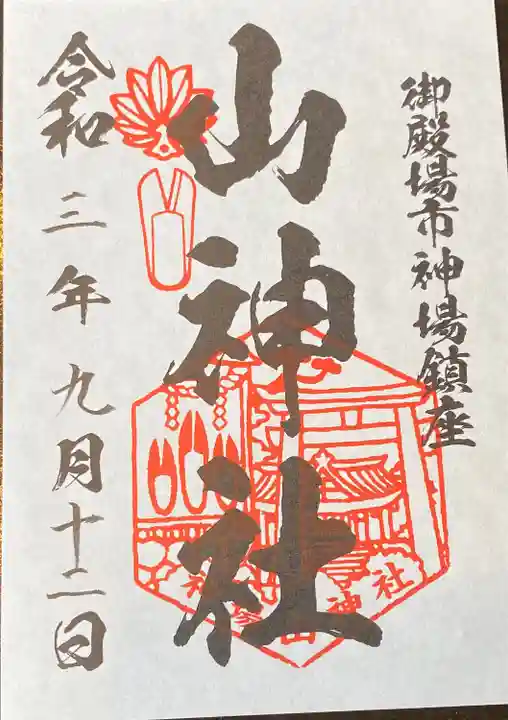 御殿場市神場鎮座
山神社
令和三年九月十二日